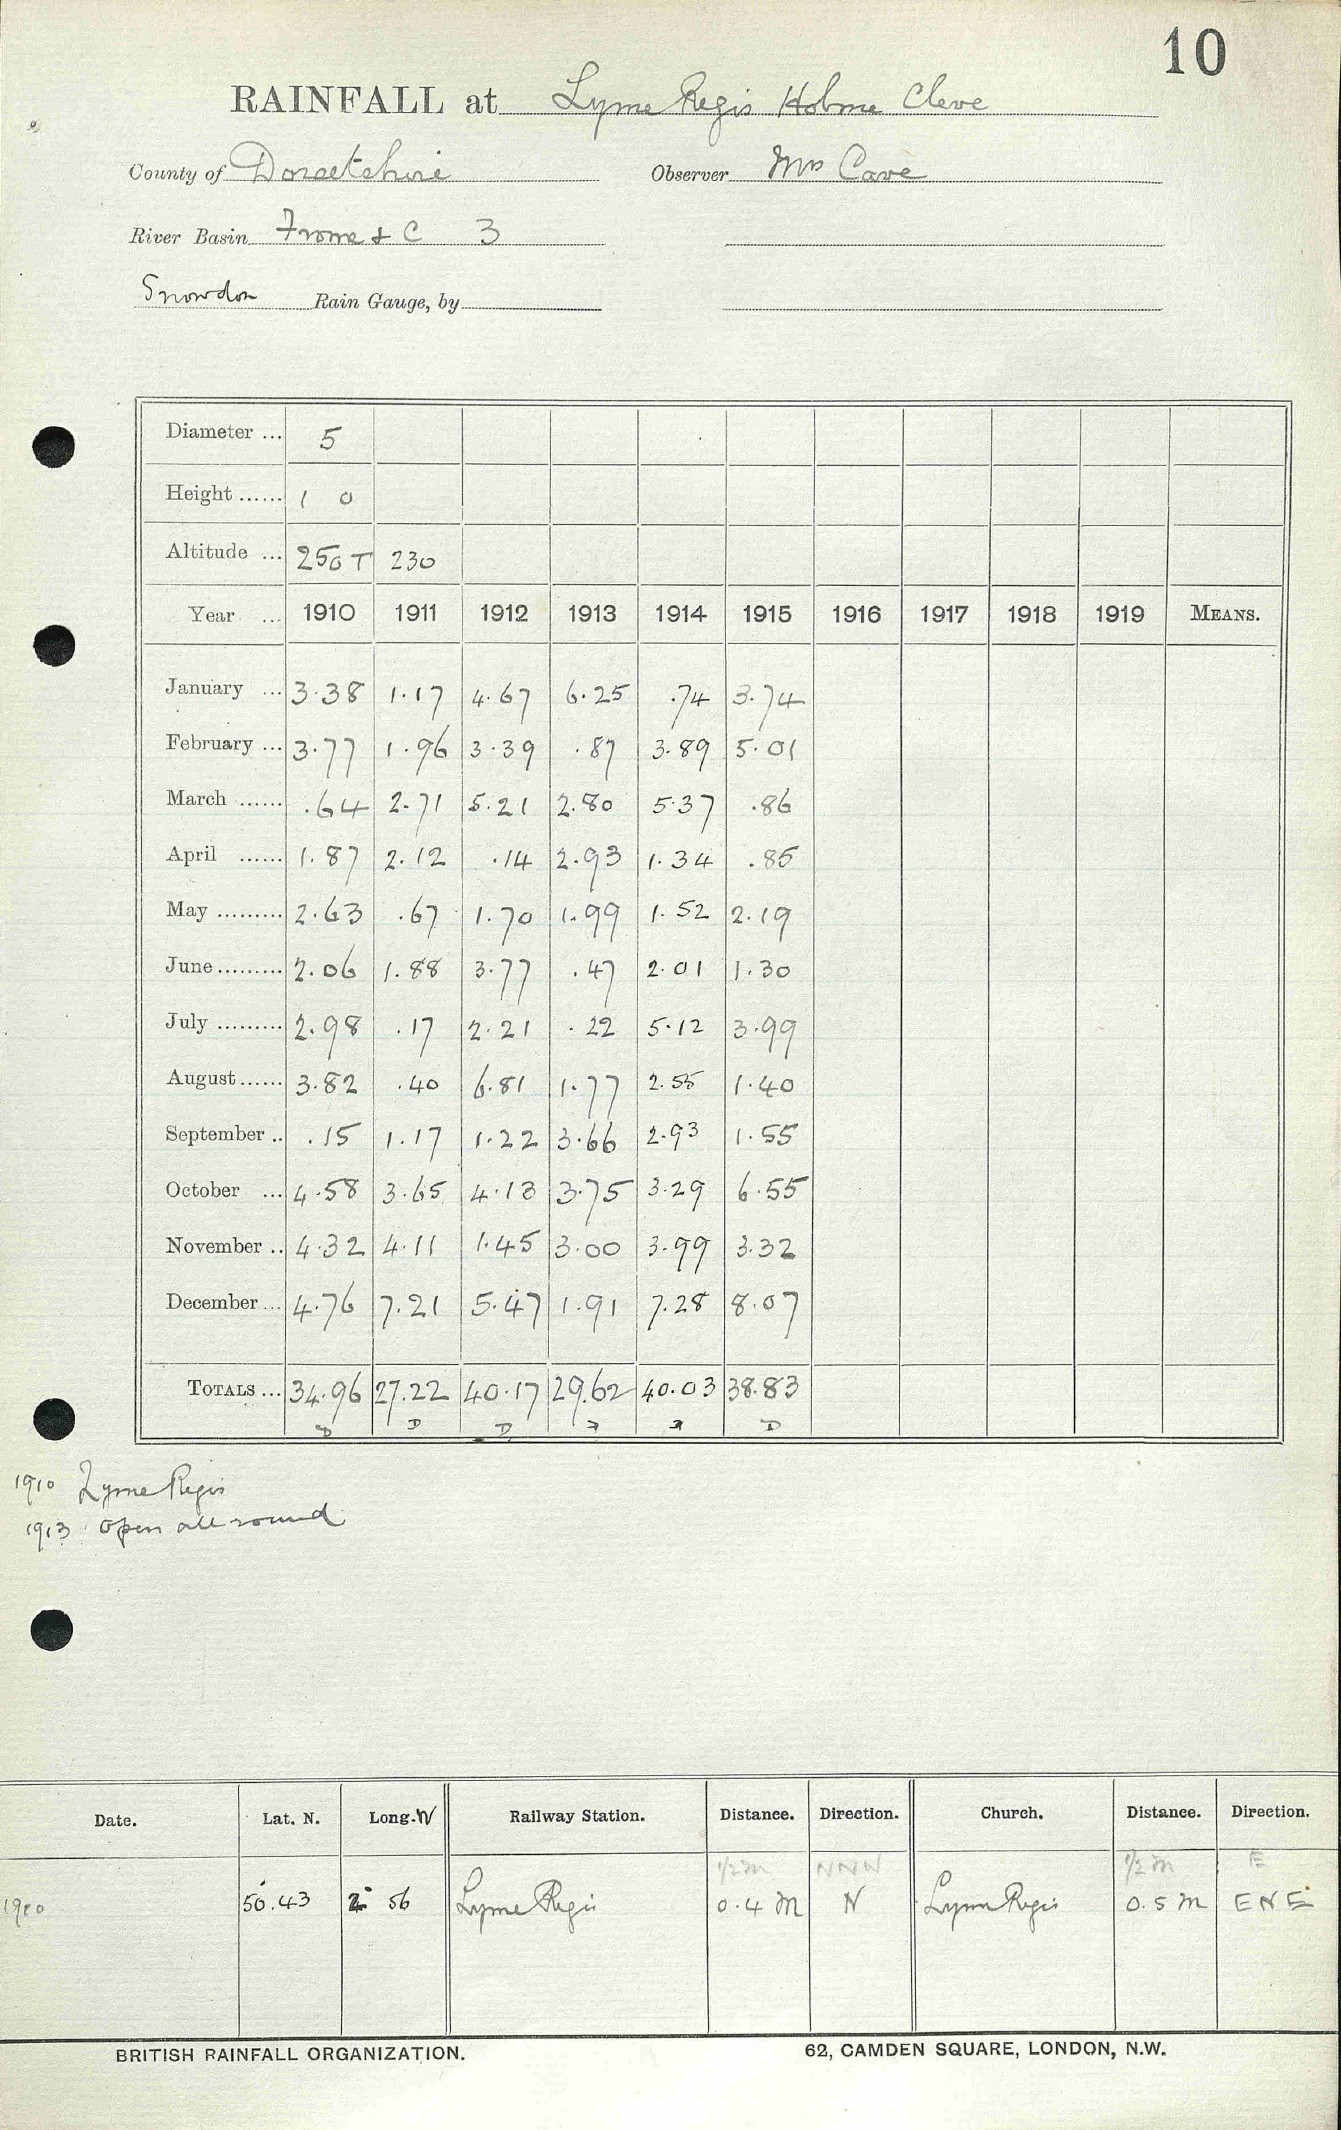 10
RAINFALL at Lyme Regis Holme Cleve
County of Dorsetshire Observer Mrs Cave
River Basin Frome & C 3
Snowdon Rain Gauge, by
Diameter ... 5
Height ...... 1 0
Altitude ... 250 T 230
Year ... 1910 1911 1912 1913 1914 1915 1916 1917 1918 1919 MEANS.
January ... 3.38 1.17 4.67 6.25 .74 3.74
February ... 3.77 1.96 3.39 .87 3.89 5.01
March ...... .64 2.71 5.21 2.80 5.37 .86
April ...... 1.87 2.12 .14 2.93 1.34 .85
May ......... 2.63 .67 1.70 1.99 1.52 2.19
June ......... 2.06 1.88 3.77 .47 2.01 1.30
July ......... 2.98 .17 2.21 .22 5.12 3.99
August ...... 3.82 .40 6.81 1.77 2.55 1.40
September .. .15 1.17 1.22 3.66 2.93 1.55
October ... 4.58 3.65 4.13 3.75 3.29 6.55
November .. 4.32 4.11 1.45 3.00 3.99 3.32
December ... 4.76 7.21 5.47 1.91 7.28 8.07
TOTALS ... 34.96 27.22 40.17 29.62 40.03 38.83
D D D D
1910 Lyme Regis
1913 Open all round
Date. Lat. N. Long. W Railway Station. Distance. Direction. Church. Distance. Direction.
1/2 m NNW 1/2 m E
50.43 2 56 Lyme Regis 0.4 m N Lyme Regis 0.5 m ENE
BRITISH RAINFALL ORGANIZATION. 62, CAMDEN SQUARE, LONDON, N.W.